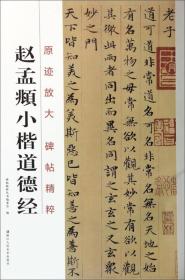 赵孟頫小楷道德经
原迹放大碑帖精粹
老子
道可道非常道名可名非常名無名天地之始
有名萬物之母常無欲以觀其妙常有欲以觀
其徼此兩者同出而異名同謂之玄玄之又玄衆
妙之門
天下皆知美之為美斯惡已皆知善之為善